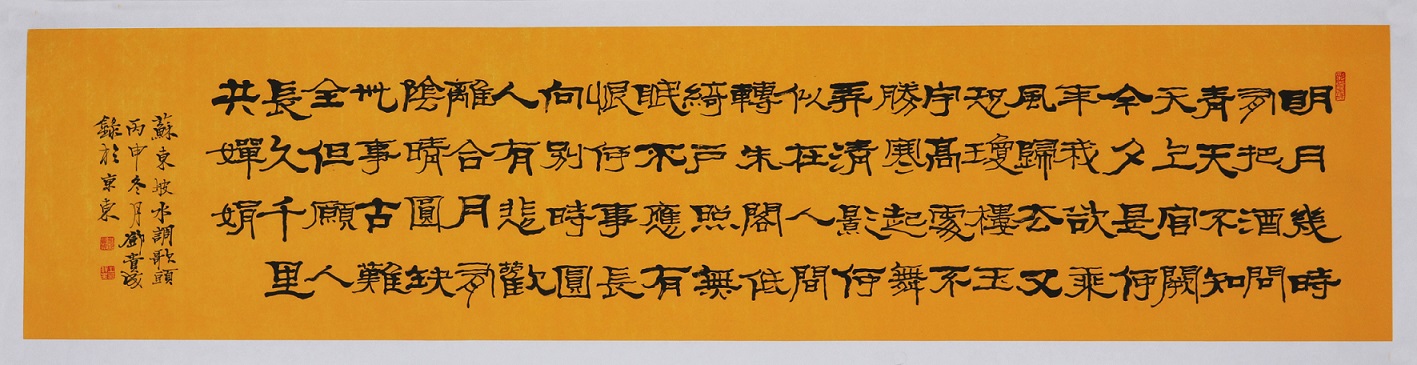 明月幾時
有把酒問
青天不知
天上宮闕
今夕是何
年我欲乘
風歸去又
恐瓊樓玉
宇高處不
勝寒起舞
弄清影何
似在人間
轉朱閣低
綺戶照無
眠不應有
恨何事長
向別時圓
人有悲歡
離合月有
陰晴圓缺
此事古難
全但願人
長久千里
共嬋娟
蘇東坡水調歌頭
丙申冬月鄧貴
錄於京東